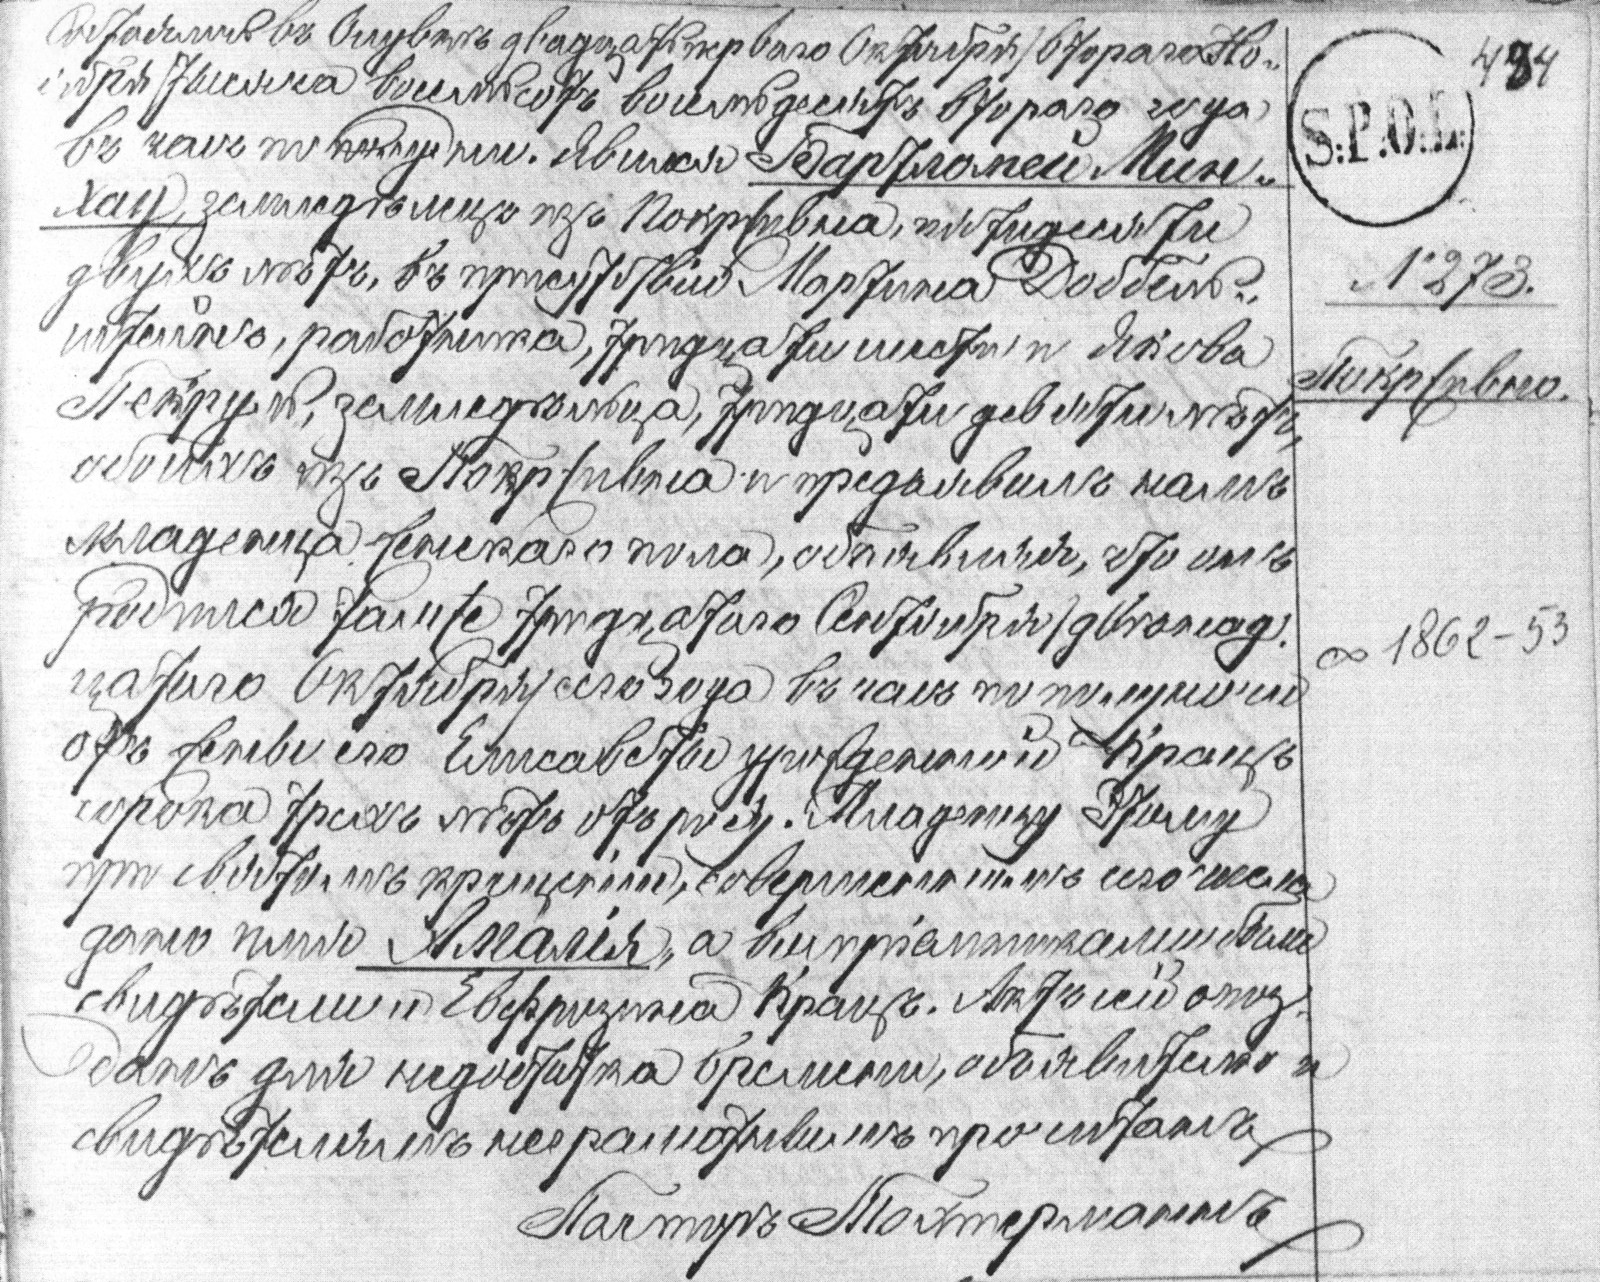 Состоялся въ двадцать перваго Октября/втораго Но-
ября тысяча восемьсотъ восемьдесятъ втораго года
въ часъ по полудни. Явился Бартломей Мин-
хау, земледѣлецъ изъ Покрживна, пятидесяти
двухъ лѣтъ, въ присутствіи Мартина Доббель-
штейнъ, работника, тридцати шести и Якова
земледѣльца, тридцати девяти лѣтъ,
обоихъ изъ Покрживна и предъявилъ намъ
младенца женскаго пола, объявляя, что онъ
родился тамже тридцатаго Сентября/двѣнад.
цатаго Октября/ сего года въ часъ по полуночи
отъ жены его Елисаветы урожденной Кранцъ
сорока трехъ лѣтъ отъ роду. Младенцу этому
при святомъ крещеніи, совершенномъ сего числа
дано имя Амалія, а воспріемниками были
свидѣтели и Евфрозина Кранцъ. Актъ сей опоз-
данъ для недостатка времени, объявителю и
свидѣтелямъ неграмотнымъ прочитанъ
Пасторъ
484
S.P.O.L.
№ 273.
Покрживно.
∞ 1862-53